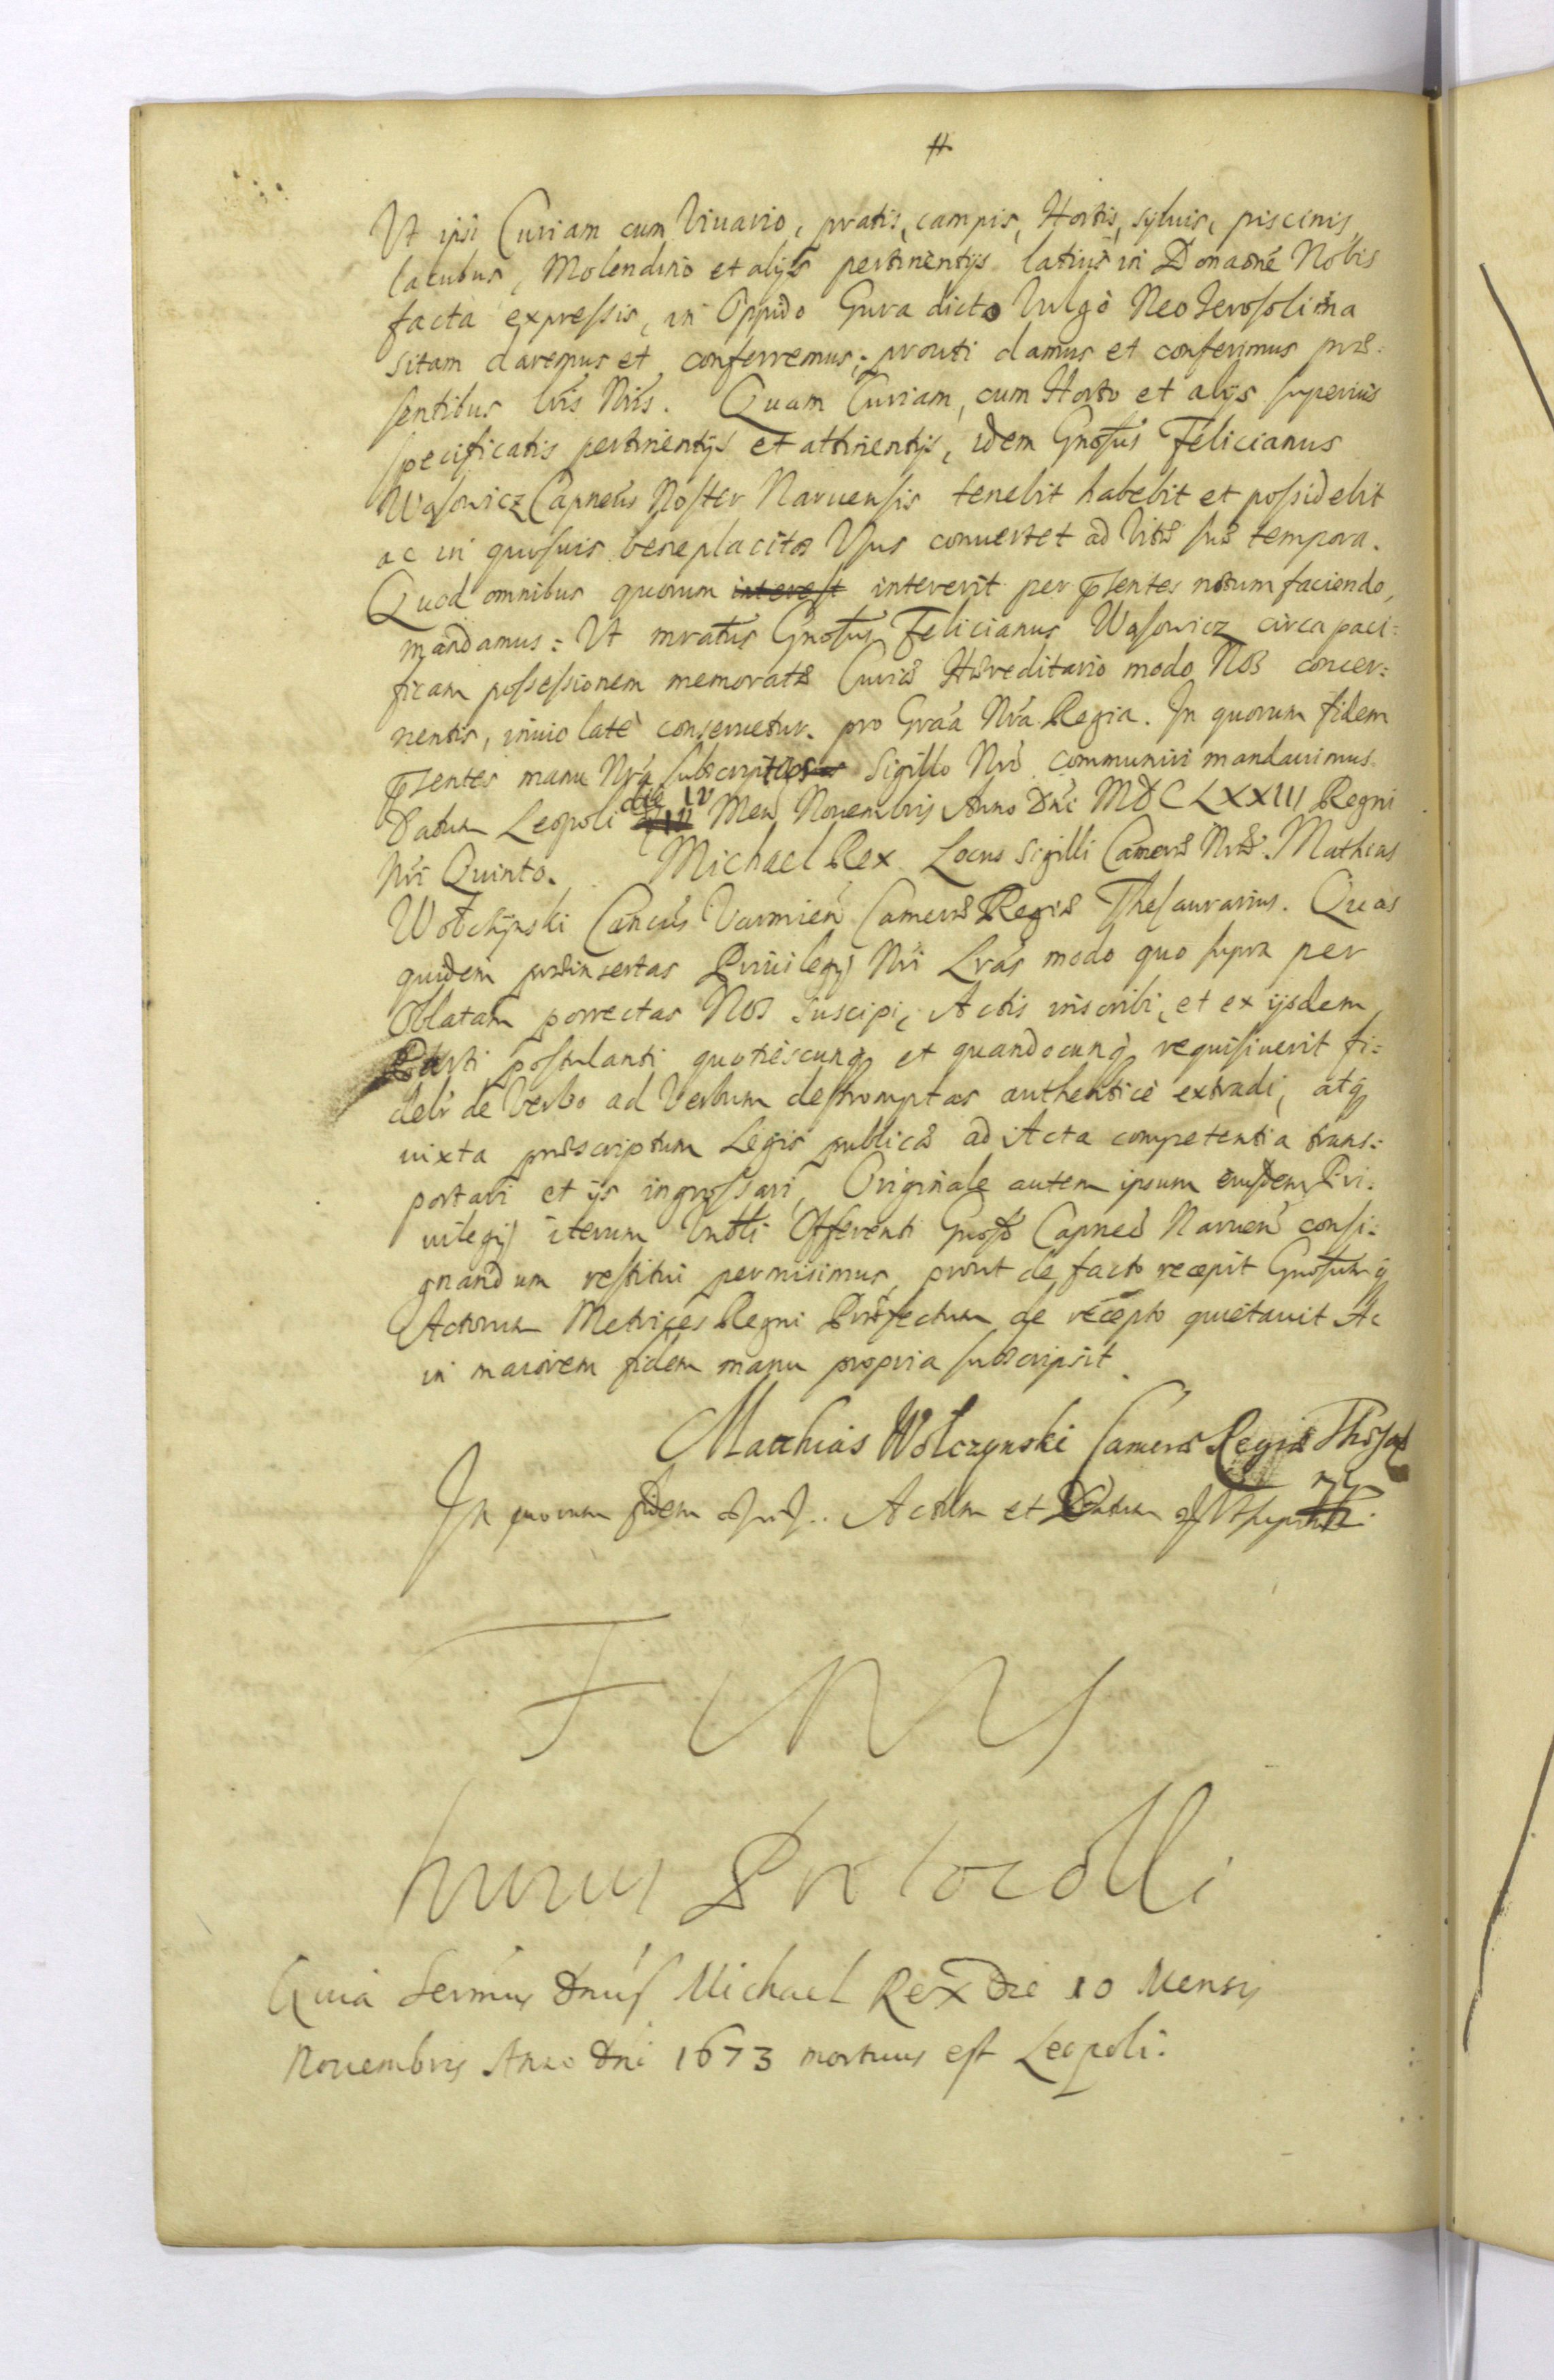 Ut ipsi Curiam cum Viuario, pratis, campis, Hortis, syluis, piscinis,
lacubus, Molendino et alijs pertinentijs latius in Donaõne Nobis
facta expressis, in Oppido Gura dicto Vulgò Neo Ierosolima
sitam daremus et conferremus; prouti damus et conferimus præ:
sentibus lris Nris. Quam Curiam, cum Horto et alijs superius
specificatis pertinentijs et attinentijs, idem Gnosus Felicianus
Wasowicz Capneus Noster Naruensis tenebit habebit et possidebit
ac in quosuis beneplacitos Usus conuertet ad Vitæ suæ tempora.
Quod omnibus quorum interest intererit per p̃sentes notum faciendo,
mandamus: Ut mratus Gnosus Felicianus Wasowicz circa paci:
ficam possessionem memoratæ Curiæ Hæreditario modo Nos concer:
nentis, inuiolatè conseruetur. pro Graa Nra Regia. In quorum fidem
p̃sentes manu Nra subscriptas Sigillo Nro communiri mandauimus
Datum Leopoli die IV Men Nouembris Anno Dni MDCLXXIII Regni
Nri Quinto. Michael Rex Locus Sigilli Cameræ Nræ. Mathias
Wołczynski Cancus Varmien Cameræ Regiæ Thesaurarius. Quas
quidem præinsertas Priuilegij Nri Lras modo quo supra per
Oblatam porrectas Nos suscipi, Actis inscribi, et ex ijsdem
Parti postulanti quotiescunq et quandocunq requisiuerit fi:
deli de Verbo ad Verbum depromptas authenticè extradi, atq
iuxta præscriptum Legis publicæ ad Acta competentia trans:
portari et ijs ingrossari, Originale autem ipsum eiusdem Pri:
uilegij iterum Offerenti Gnoso Capneo Naruen consi:
gnandum restitui permisimus, prout de facto recepit Gnosumq
Actorum Metrices Regni Præfectum de recepto quietauit Ac
in maiorem fidem manu propria subscripsit.
Matthias Wołczynski Cameræ Regiæ Thesaur
In quorum fidem Actum et Datum Ut supra
Finis
huius Protocolli
Quia Sermus Dnus Michael Rex Die 10 Mensis
Nouembris Anno Dni 1673 mortuus est Leopoli.